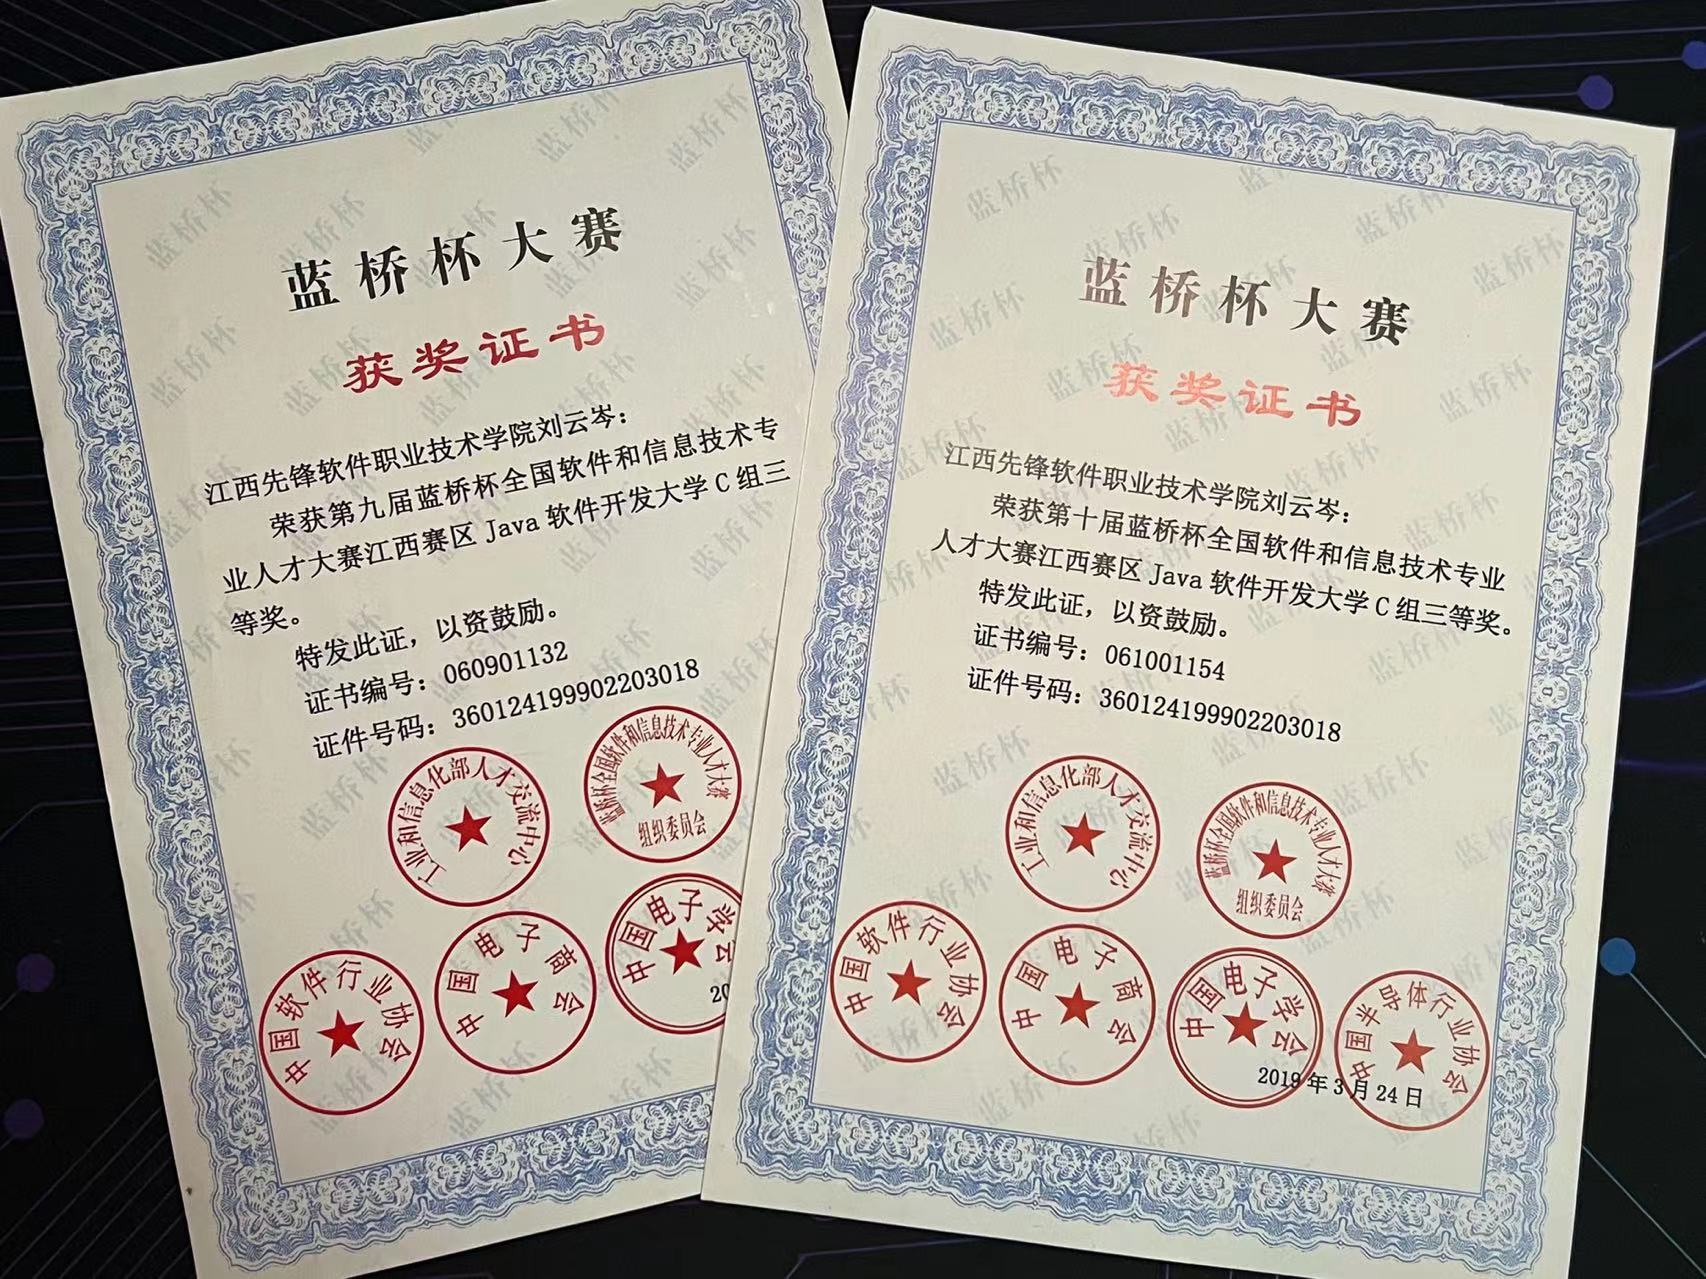 蓝桥杯大赛
获奖证书
江西先锋软件职业技术学院刘云岑：
荣获第九届蓝桥杯全国软件和信息技术专
业人才大赛江西赛区 Java 软件开发大学 C 组三
等奖。
特发此证，以资鼓励。
证书编号：060901132
证件号码：360124199902203018
工业和信息化部人才交流中心
蓝桥杯全国软件和信息技术专业人才大赛
组织委员会
中国软件行业协会
中国电子商会
中国电子学会
20
蓝桥杯大赛
获奖证书
江西先锋软件职业技术学院刘云岑：
荣获第十届蓝桥杯全国软件和信息技术专业
人才大赛江西赛区 Java 软件开发大学 C 组三等奖。
特发此证，以资鼓励。
证书编号：061001154
证件号码：360124199902203018
工业和信息化部人才交流中心
蓝桥杯全国软件和信息技术专业人才大赛
组织委员会
中国软件行业协会
中国电子商会
中国电子学会
中国半导体行业协会
2019 年 3 月 24 日